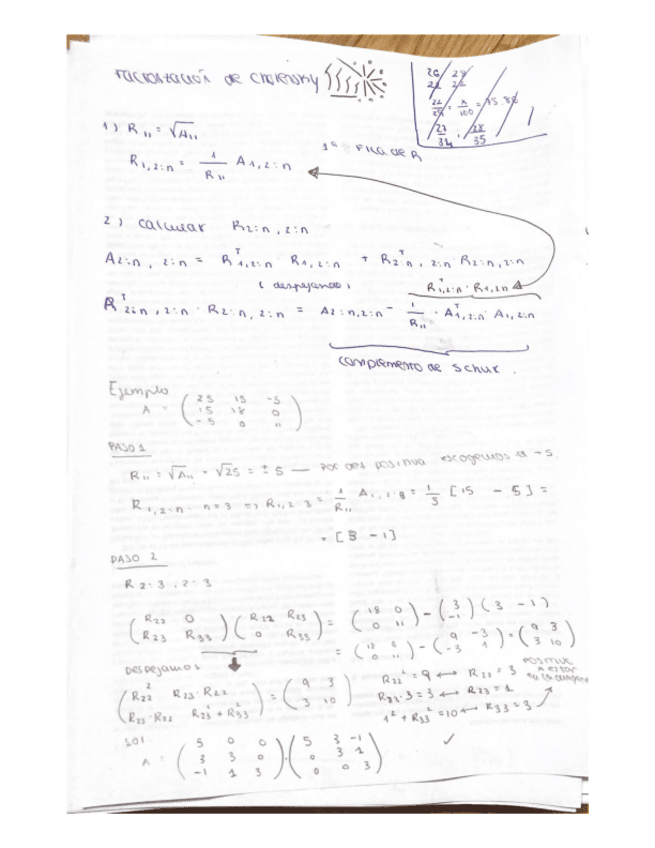 Factorización de Cholensky
26 28
22/25 = x/100 = 75.86
27/34 , 28/35
1) R₁₁ = √A₁₁
R₁,₂:ₙ = 1/R₁₁ A₁,₂:ₙ
1ª FILA de R
2) calcular R₂:ₙ,₂:ₙ
A₂:ₙ,₂:ₙ = Rᵀ₁,₂:ₙ · R₁,₂:ₙ + Rᵀ₂:ₙ,₂:ₙ R₂:ₙ,₂:ₙ
(despejando) Rᵀ₁,₂:ₙ · R₁,₂:ₙ
Rᵀ₂:ₙ,₂:ₙ · R₂:ₙ,₂:ₙ = A₂:ₙ,₂:ₙ - 1/R₁₁ · Aᵀ₁,₂:ₙ · A₁,₂:ₙ
complemento de Schur.
Ejemplo
A = (25 15 -5
15 18 0
-5 0 11)
PASO 1
R₁₁ = √A₁₁ = √25 = ±5 — Por def positiva escogemos a +5.
R₁,₂:ₙ n=3 => R₁,₂:₃ = 1/R₁₁ A₁,₂:₃ = 1/5 [15 -5] =
= [3 -1]
PASO 2
R₂:₃,₂:₃
(R₂₂ 0
R₂₃ R₃₃)(R₂₂ R₂₃
0 R₃₃) = (18 0
0 11) - (3
-1)(3 -1)
= (18 0
0 11) - (9 -3
-3 1) = (9 3
3 10)
Despejamos
(R₂₂² R₂₃·R₂₂
R₂₃·R₂₂ R₂₃² + R₃₃²) = (9 3
3 10)
R₂₂² = 9 ↔ R₂₂ = 3
R₂₃·3 = 3 ↔ R₂₃ = 1
1² + R₃₃² = 10 ↔ R₃₃ = 3
SOL.
A = (5 0 0
3 3 0
-1 1 3)·(5 3 -1
0 3 1
0 0 3)